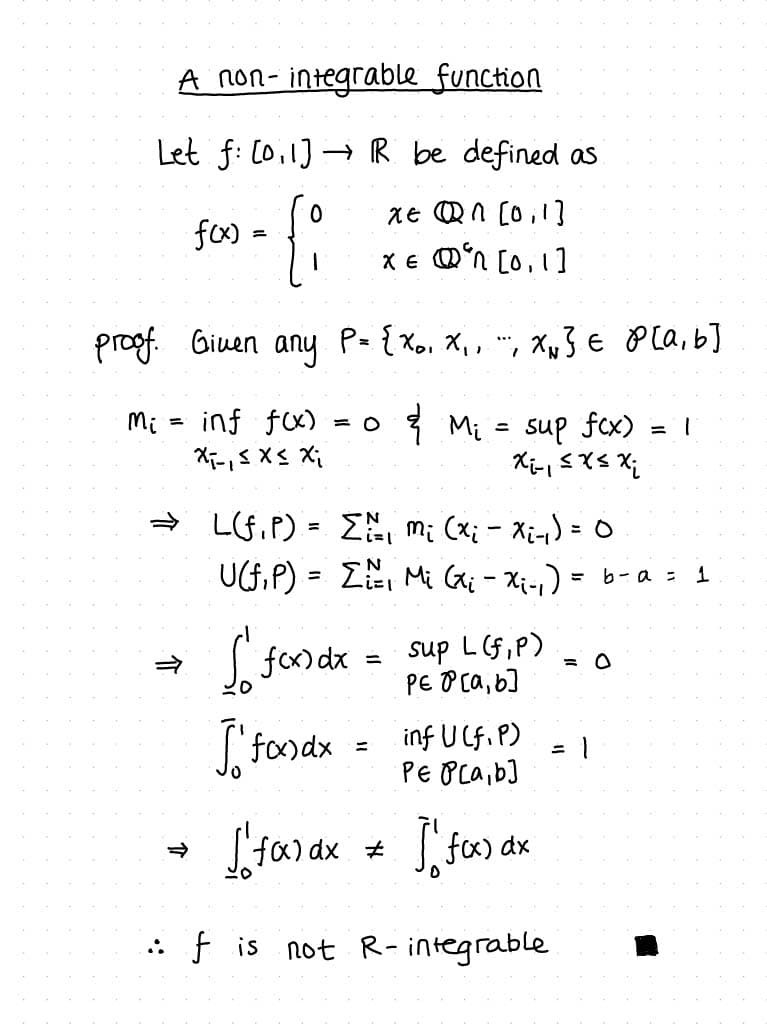 A non-integrable function
Let f: [0,1] → ℝ be defined as
f(x) = { 0 x ∈ ℚ ∩ [0,1]
1 x ∈ ℚᶜ ∩ [0,1]
proof. Given any P = {x₀, x₁, ..., x_N} ∈ 𝒫[a,b]
mᵢ = inf f(x) = 0 & Mᵢ = sup f(x) = 1
xᵢ₋₁ ≤ x ≤ xᵢ xᵢ₋₁ ≤ x ≤ xᵢ
⇒ L(f,P) = Σᵢ₌₁ᴺ mᵢ (xᵢ - xᵢ₋₁) = 0
U(f,P) = Σᵢ₌₁ᴺ Mᵢ (xᵢ - xᵢ₋₁) = b-a = 1
⇒ ∫̲₀¹ f(x) dx = sup L(f,P) = 0
P ∈ 𝒫[a,b]
∫̅₀¹ f(x) dx = inf U(f,P) = 1
P ∈ 𝒫[a,b]
⇒ ∫̲₀¹ f(x) dx ≠ ∫̅₀¹ f(x) dx
∴ f is not R-integrable ■